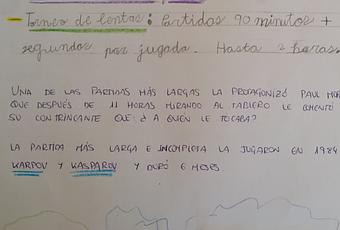 - Torneo de lentas: Partidos 90 minutos +
segundos por jugada. Hasta 2 horas.
UNA DE LAS PARTIDAS MÁS LARGAS LA PROTAGONIZÓ PAUL MOR
QUE DESPUÉS DE 11 HORAS MIRANDO AL TABLERO LE COMENTÓ
SU CONTRINCANTE QUE: ¿A QUIÉN LE TOCABA?
LA PARTIDA MÁS LARGA E INCOMPLETA LA JUGARON EN 1984
KARPOV Y KASPAROV Y DURÓ 6 MESES